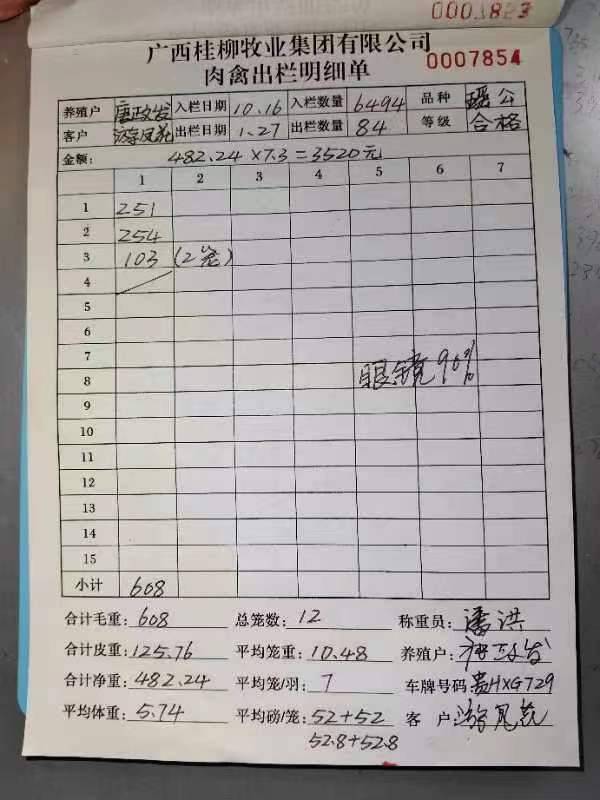 0003823
广西桂柳牧业集团有限公司
肉禽出栏明细单 0007854
养殖户 唐政发 入栏日期 10.16 入栏数量 6494 品种 瑶公
客户 游凤花 出栏日期 1.27 出栏数量 84 等级 合格
金额: 482.24×7.3=3520元
1 2 3 4 5 6 7
1 251
2 254
3 103 (2笼)
4
5
6
7
8 眼镜90%
9
10
11
12
13
14
15
小计 608
合计毛重: 608 总笼数: 12 称重员: 潘洪
合计皮重: 125.76 平均笼重: 10.48 养殖户: 唐政发
合计净重: 482.24 平均笼/羽: 7 车牌号码 贵HXG729
平均体重: 5.74 平均磅/笼: 52+52 客户 游凤花
52.8+52.8